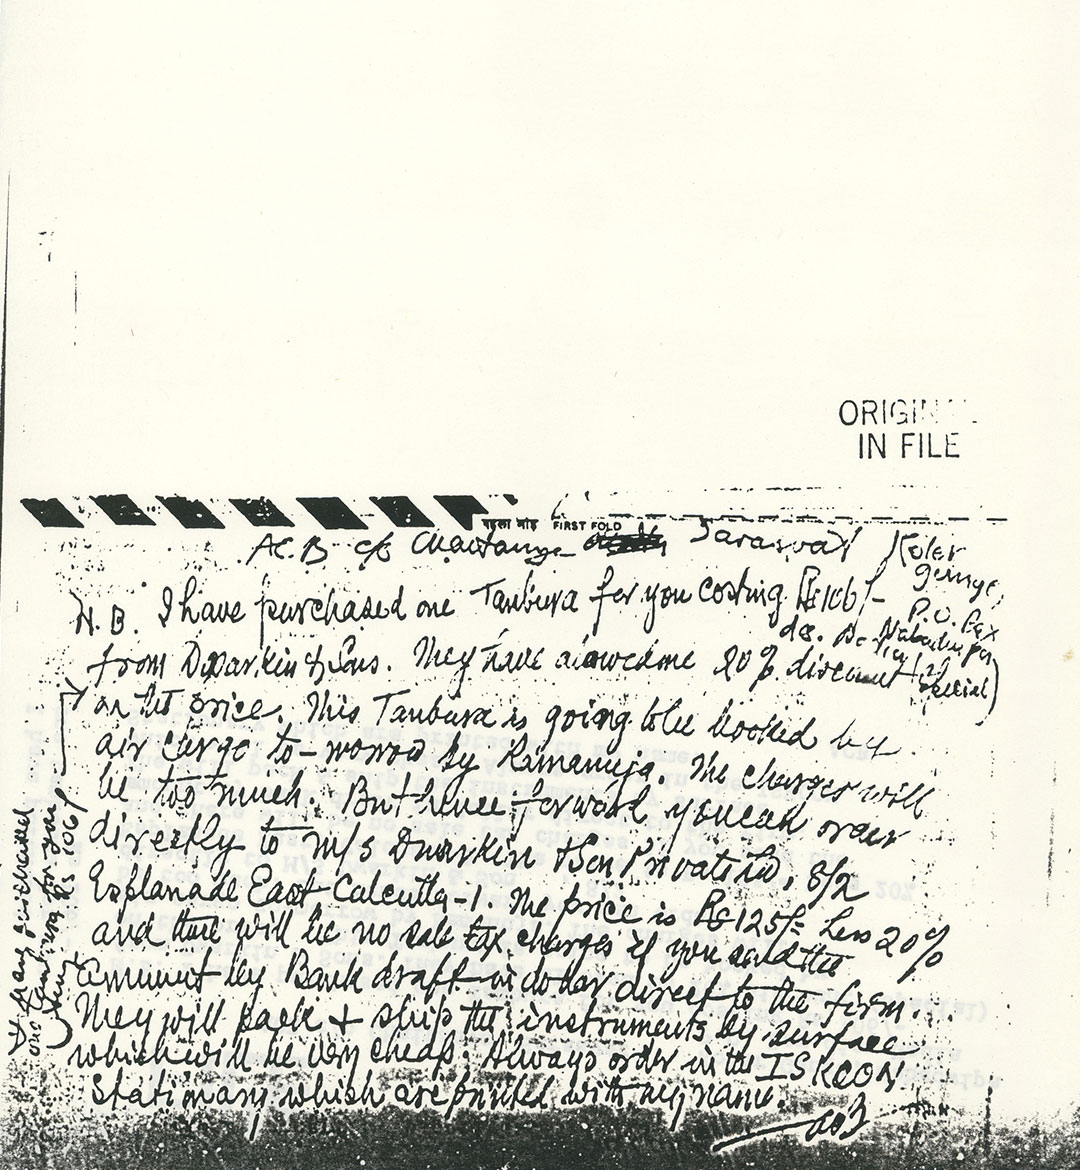 ORIGIN
IN FILE
पहला मोड़ FIRST FOLD
A.C.B c/o Saraswat
N.B. I have purchased one Tanbura for you costing Rs 106/-
P.O. Box
from Dwarkin & Sons. They have allowed me 20% discount
Special)
on the price. This Tanbura is going to be booked by
air cargo to-morrow by Ramanuja. The charges will
be too much. But hence forward you can order
directly to M/S Dwarkin & Son Private Ltd. 8/2
Esplanade East Calcutta-1. The price is Rs 125/- Less 20%
and there will be no sale tax charges if you send the
amount by Bank draft in dollar direct to the firm.
They will pack & ship the instruments by surface
which will be very cheap. Always order in the ISKCON
stationary which are printed with my name.
ACB
purchased
one for your
Rs 106/